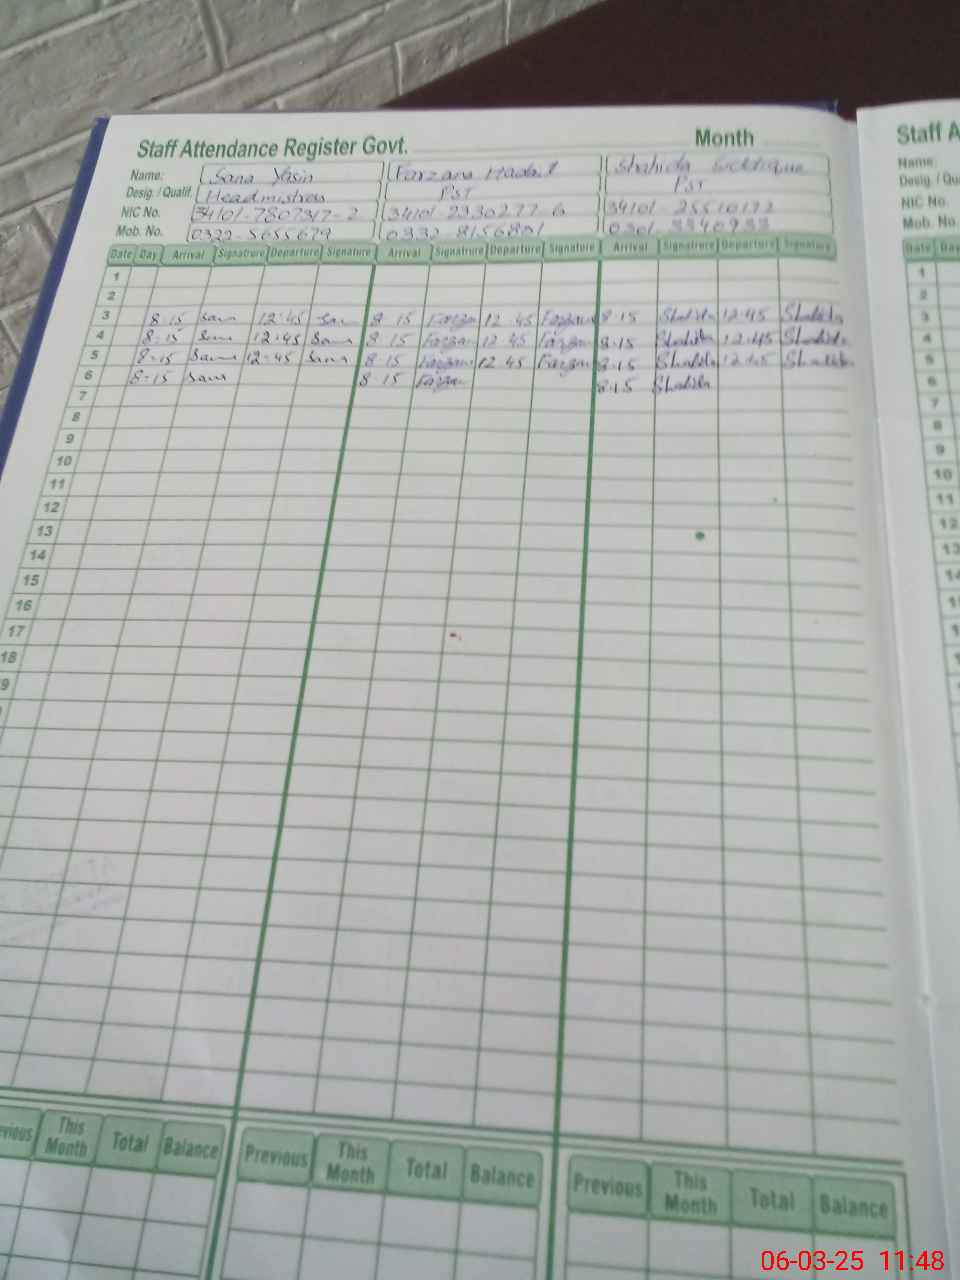 Staff Attendance Register Govt. Month Staff A
Name: Sana Yasin Farzana Shahida Siddique Name:
Desig. / Qualif. Headmistress PST PST Desig. / Qu
NIC No. 34101-7807317-2 34101-2330277-6 34101-25510172 NIC No.
Mob. No. 0322-5655679 0332-8156801 0301-3340933 Mob. No.
Date Day Arrival Signatrure Departure Signature Arrival Signatrure Departure Signature Arrival Signatrure Departure Signature Date Day
1 1
2 2
3 8:15 Sana 12:45 Sana 8 15 Farzan 12 45 Farzan 8:15 Shahida 12:45 Shahida 3
4 8:15 Sana 12:45 Sana 8 15 Farzan 12 45 Farzan 8:15 Shahida 12:45 Shahida 4
5 8:15 Sana 12:45 Sana 8 15 Farzan 12 45 Farzan 8:15 Shahida 12:45 Shahida 5
6 8:15 Sana 8 15 Farzan 8:15 Shahida 6
7 7
8 8
9 9
10 10
11 11
12 12
13 13
14
15
16
17
18
9
vious This Month Total Balance Previous This Month Total Balance Previous This Month Total Balance
06-03-25 11:48